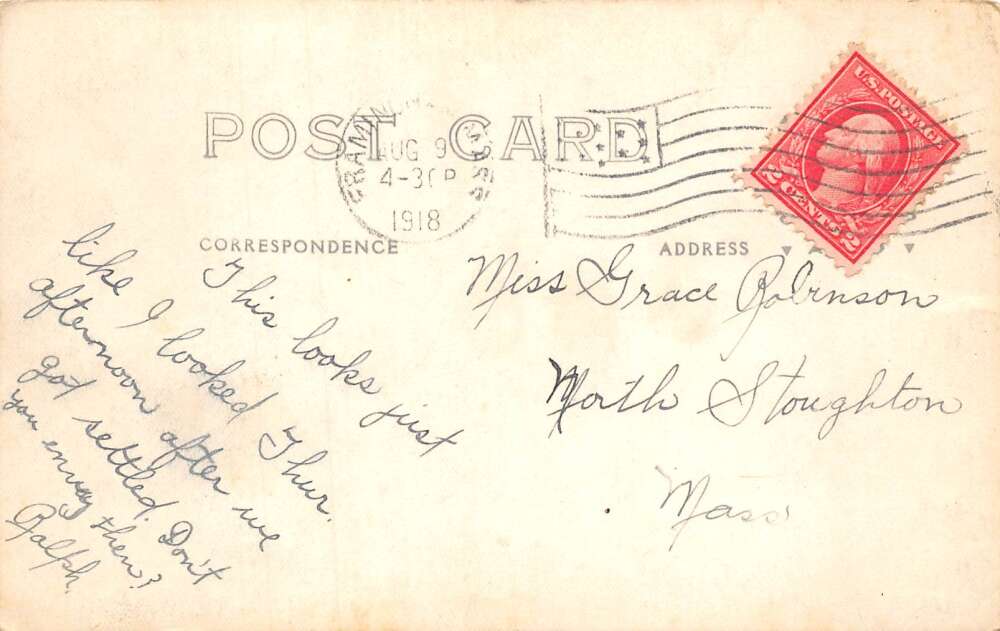 POST CARD
FRAMINGHAM MASS
AUG 9
4-30P
1918
U.S. POSTAGE
2 CENTS 2
CORRESPONDENCE
ADDRESS
This looks just
like I looked Thur.
afternoon after we
got settled. Don't
you envy them?
Ralph.
Miss Grace Robinson
North Stoughton
Mass